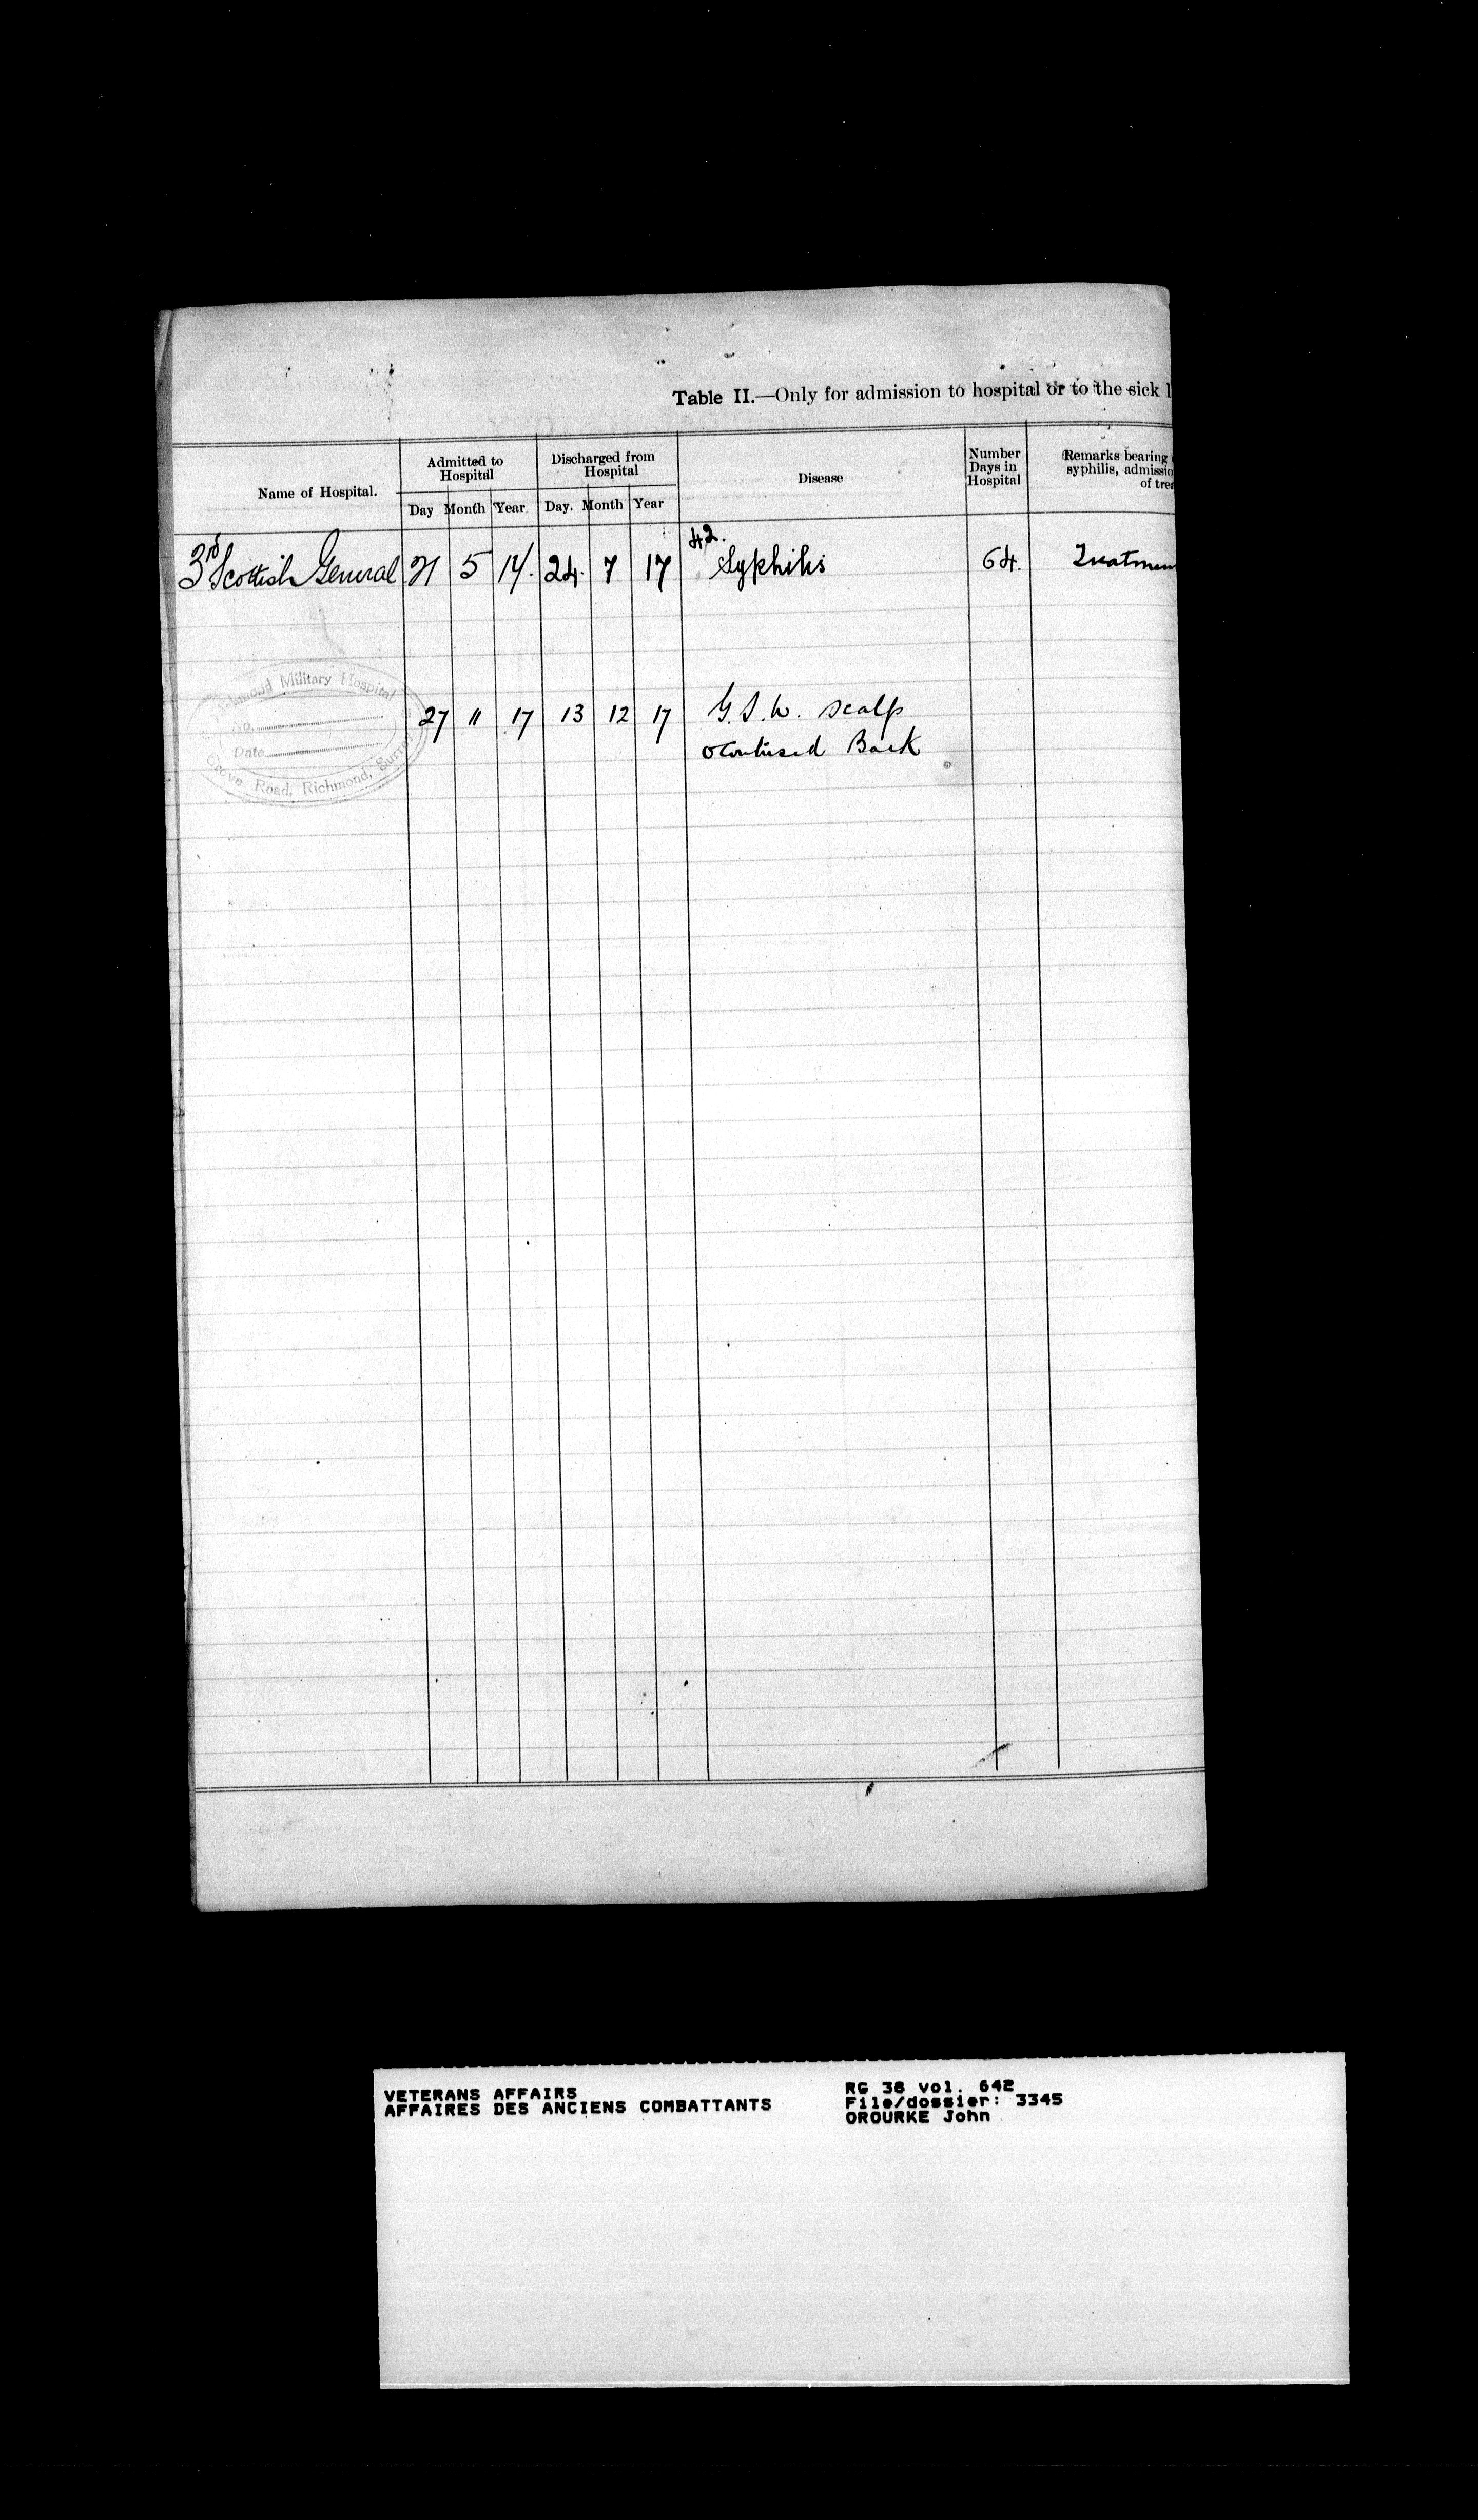 Table II.—Only for admission to hospital or to the sick l
Name of Hospital.
Admitted to
Hospital
Day Month Year
Discharged from
Hospital
Day. Month Year
Disease
Number
Days in
Hospital
Remarks bearing
syphilis, admissio
of trea
3rd Scottish General 21 5 17. 24. 7 17 Syphilis 64. Treatmen
42.
Richmond Military Hospital
No.
Date
Grove Road, Richmond, Surrey
27 11 17 13 12 17 G.S.W. Scalp
Contused Back
VETERANS AFFAIRS
AFFAIRES DES ANCIENS COMBATTANTS
RG 38 vol. 642
File/dossier: 3345
OROURKE John